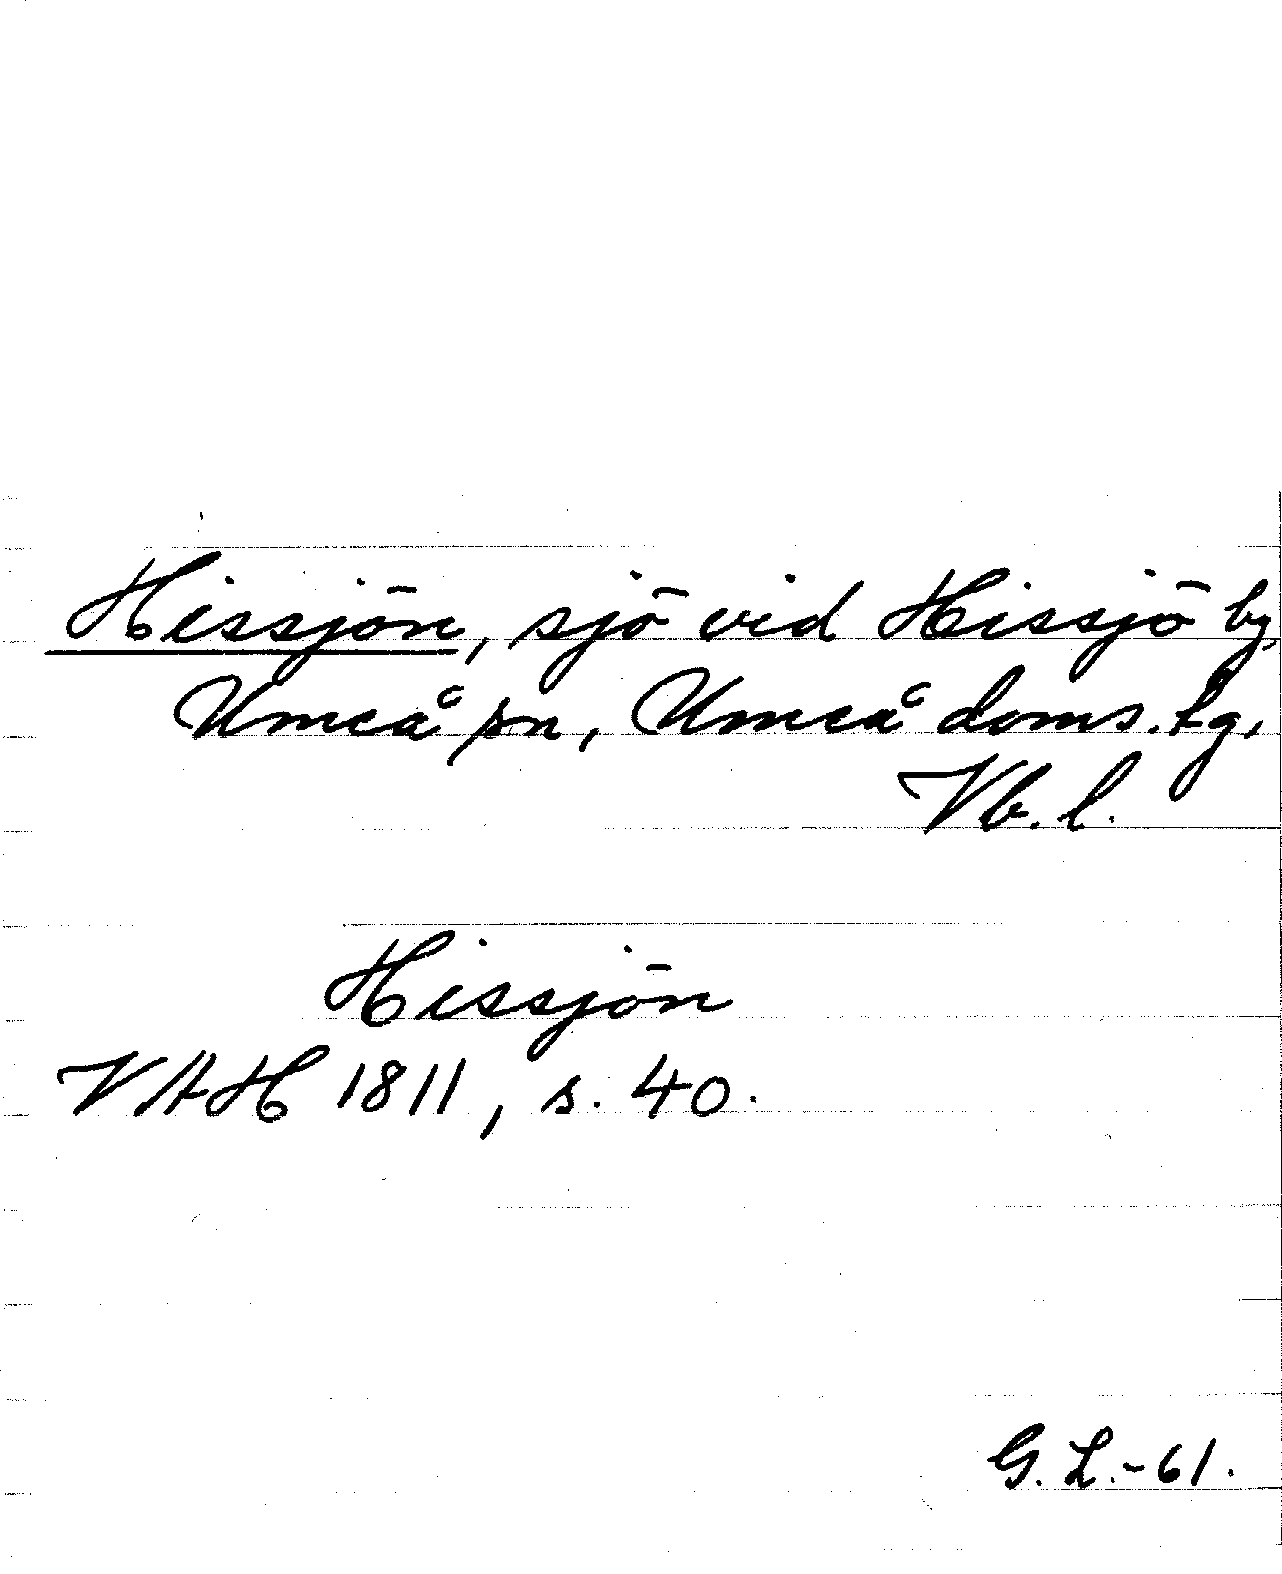 Hissjön, sjö vid Hissjö by,
Umeå sn, Umeå doms. tg,
Vb. l.
Hissjön
VAH 1811, s. 40.
G. L. -61.